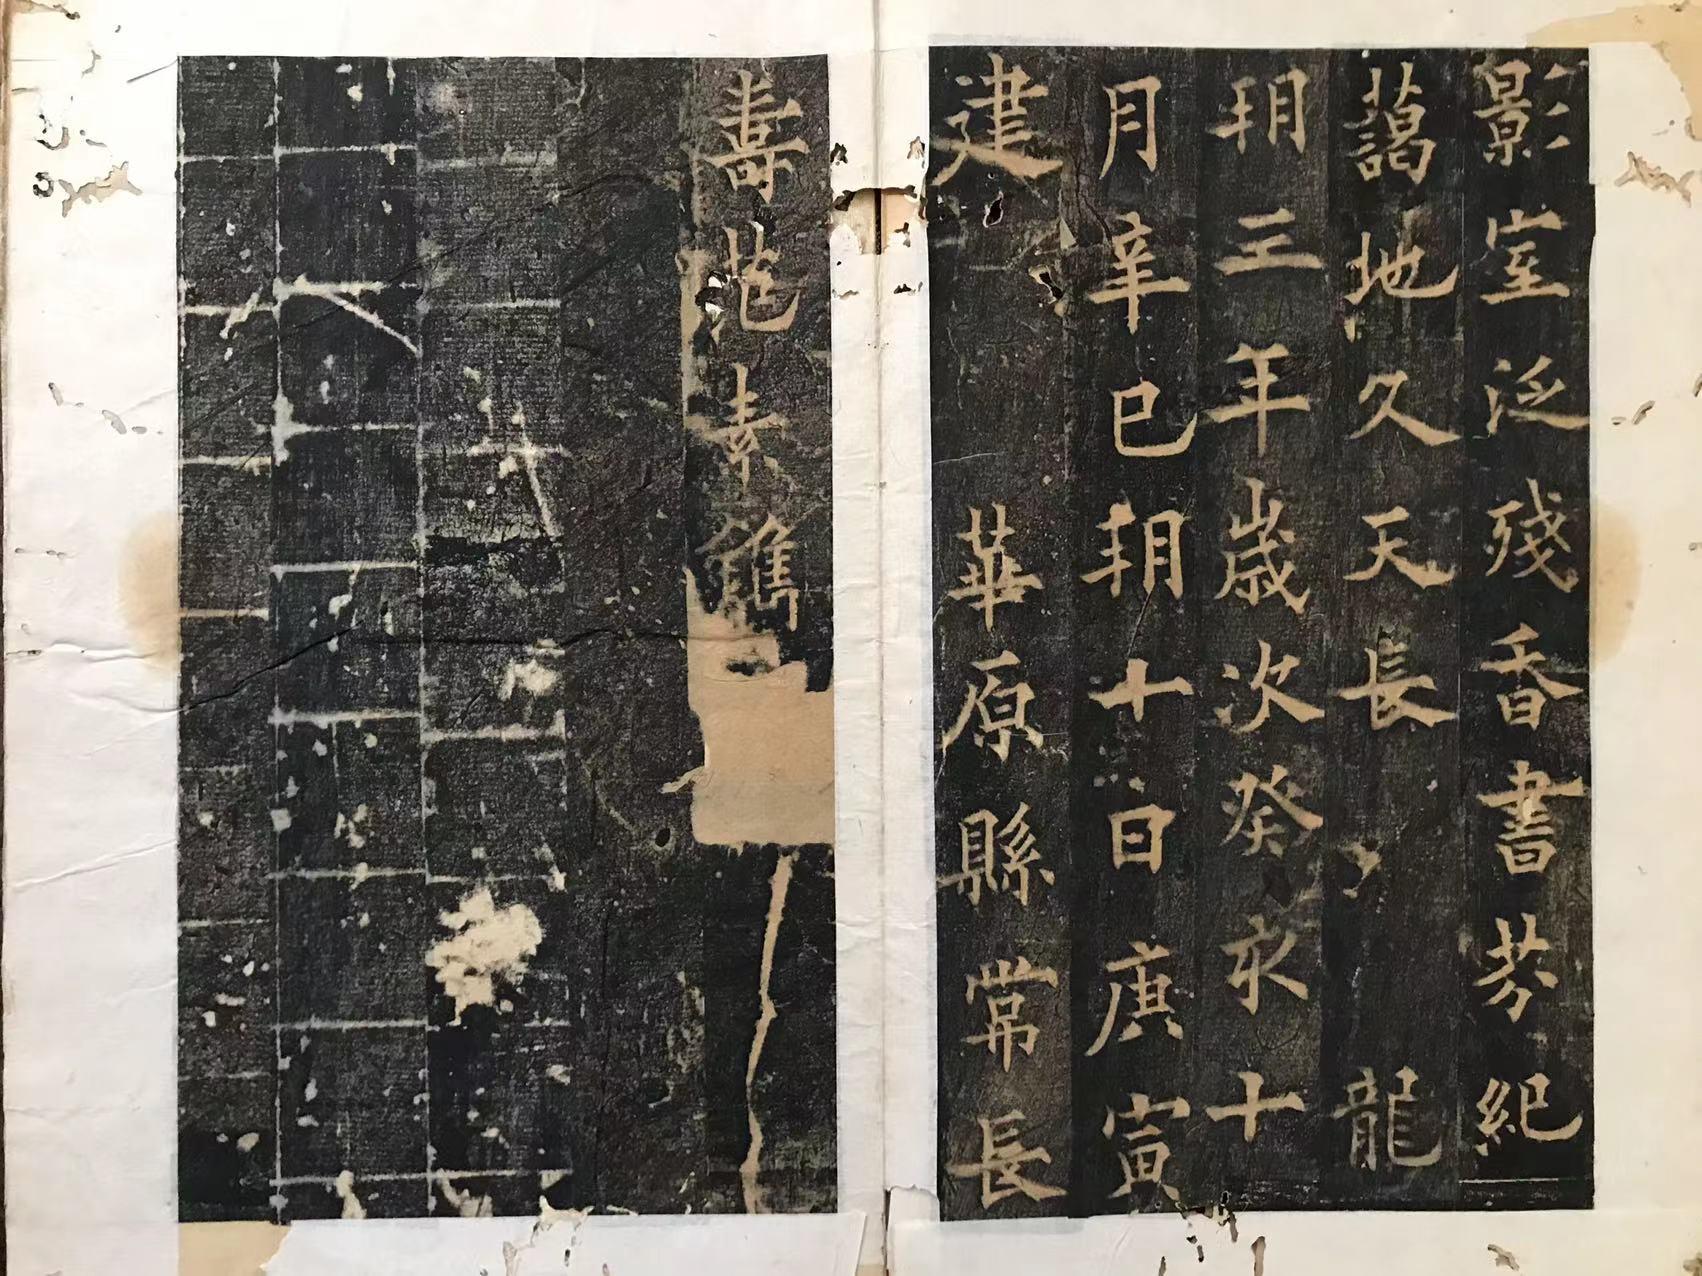 影室泛殘香書芬紀
藹地久天長 龍
朔三年歲次癸亥十
月辛巳朔十日庚寅
建 華原縣常長
壽范素鐫